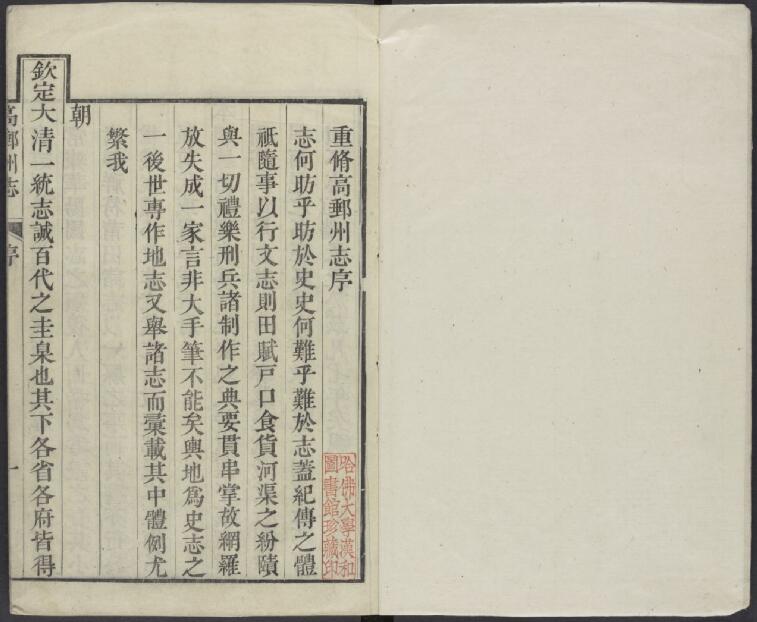 重脩高郵州志序
志何昉乎昉於史史何難乎難於志蓋紀傳之體
祇隨事以行文志則田賦戸口食貨河渠之紛賾
與一切禮樂刑兵諸制作之典要貫串掌故網羅
放失成一家言非大手筆不能矣輿地爲史志之
一後世專作地志又舉諸志而彙載其中體例尤
繁我
朝
欽定大清一統志誠百代之圭臬也其下各省各府皆得
高郵州志
序
一
哈佛大學漢和
圖書館珍藏印